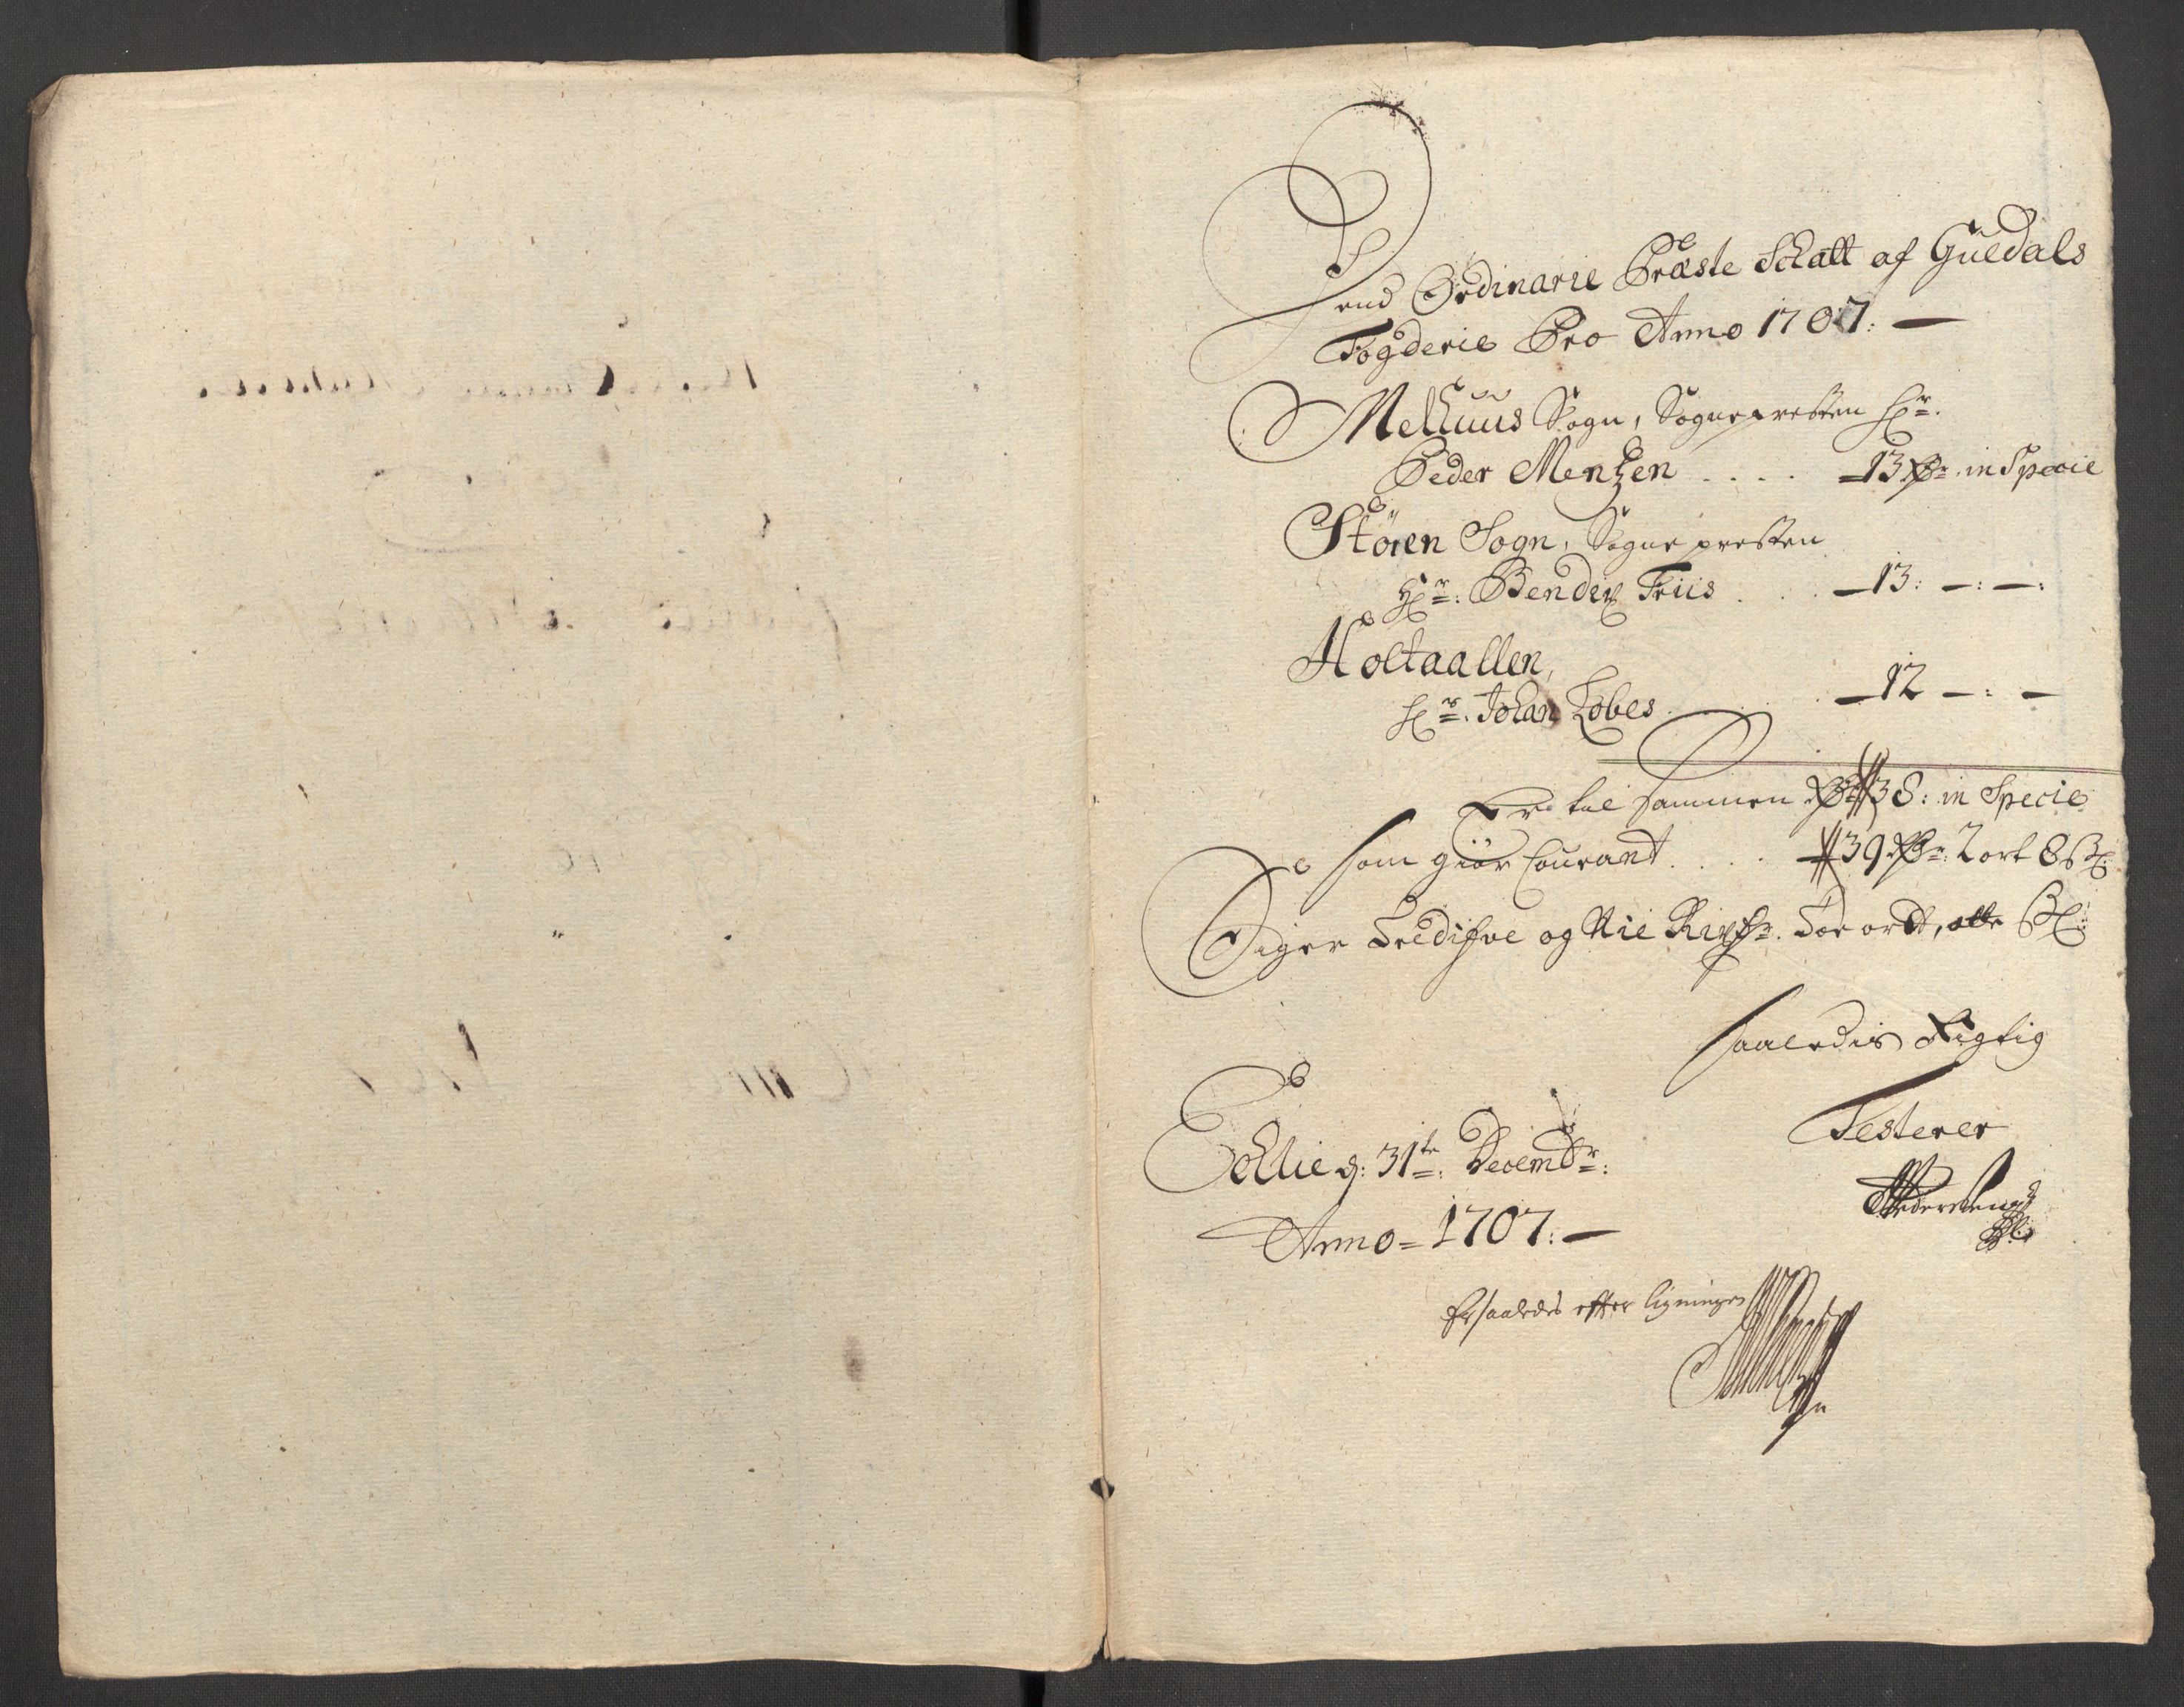 Dend Ordinarie Præste Schatt af Guldals
Fogderie Pro Anno 1707:
Melhuus Sogn, Sognepresten Hr.
Peder Mentzen .... 13 Rdr. in Specie
Stören Sogn, Sognepresten
Hr: Bendix Friis . . . 13: —: —:
Holtaallen,
Hr. Johan Lobes . . . 12 —: —
Er tilsammen Rdr 38: in Specie
som giör Courant .... 39 Rdr: 2 ort 8 ß:
Siger Tredifve og Nie Rixdr. Toe ordt, otte ß:
Saaledis Rigtig
Testerer
Hollie d: 31te: Decembr:
Anno = 1707: —
Er saaledes efter ligningen